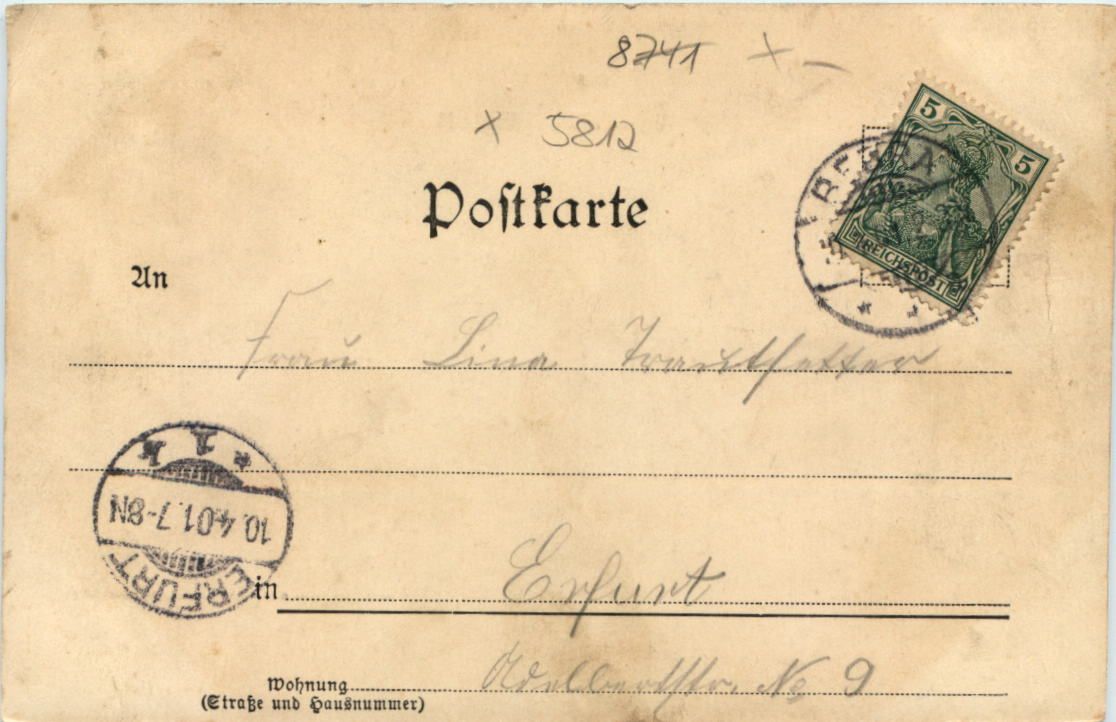 8741 x –
x 5812
Postkarte
5 5
REICHSPOST
BEBRA
An
Frau Lina Trautvetter
* 1 k
10.4.01.7-8N
ERFURT
in Erfurt
Wohnung Adelbertstr. No 9
(Straße und Hausnummer)